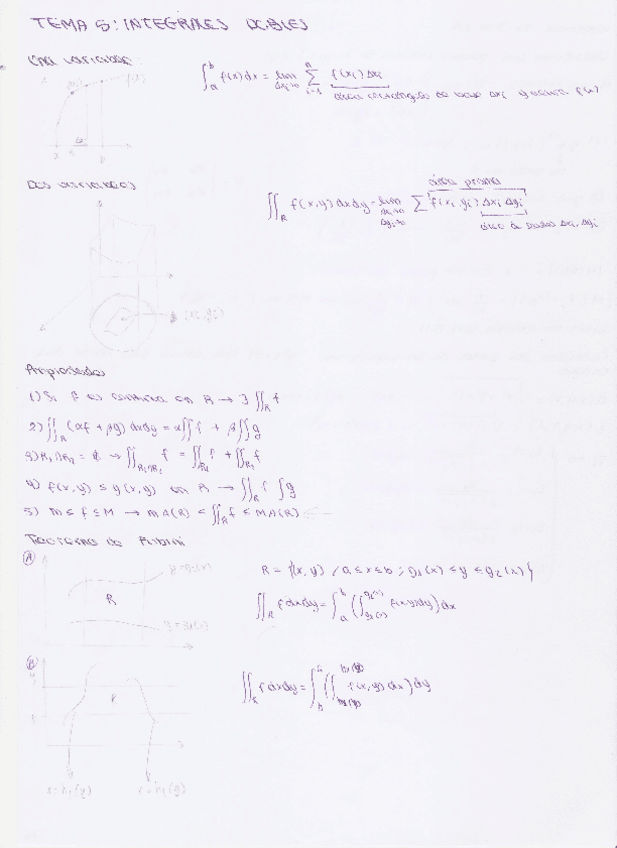 TEMA 5: INTEGRALES DOBLES
Una variable:
∫_a^b f(x) dx = lim_{Δxi→0} ∑_{i=1}^n f(xi) Δxi
área rectángulo de base Δxi y altura f(x)
Dos variables
∬_R f(x,y) dxdy = lim_{Δxi→0, Δyi→0} ∑ f(xi, yi) Δxi Δyi
área prisma
Δxi, Δyi
Propiedades
1) Si f es continua en R → ∃ ∬_R f
2) ∬_R (αf + βg) dxdy = α∬f + β∬g
3) R1∩R2 = ∅ → ∬_{R1∩R2} f = ∬_{R1} f + ∬_{R2} f
4) f(x,y) ≤ g(x,y) en R → ∬_R f ∫g
5) m ≤ f ≤ M → mA(R) ≤ ∬_R f ≤ MA(R)
Teorema de Fubini
A
R
R = {(x,y) / a ≤ x ≤ b ; g1(x) ≤ y ≤ g2(x)}
∬_R f dxdy = ∫_a^b (∫_{g1(x)}^{g2(x)} f(x,y)dy) dx
B
R